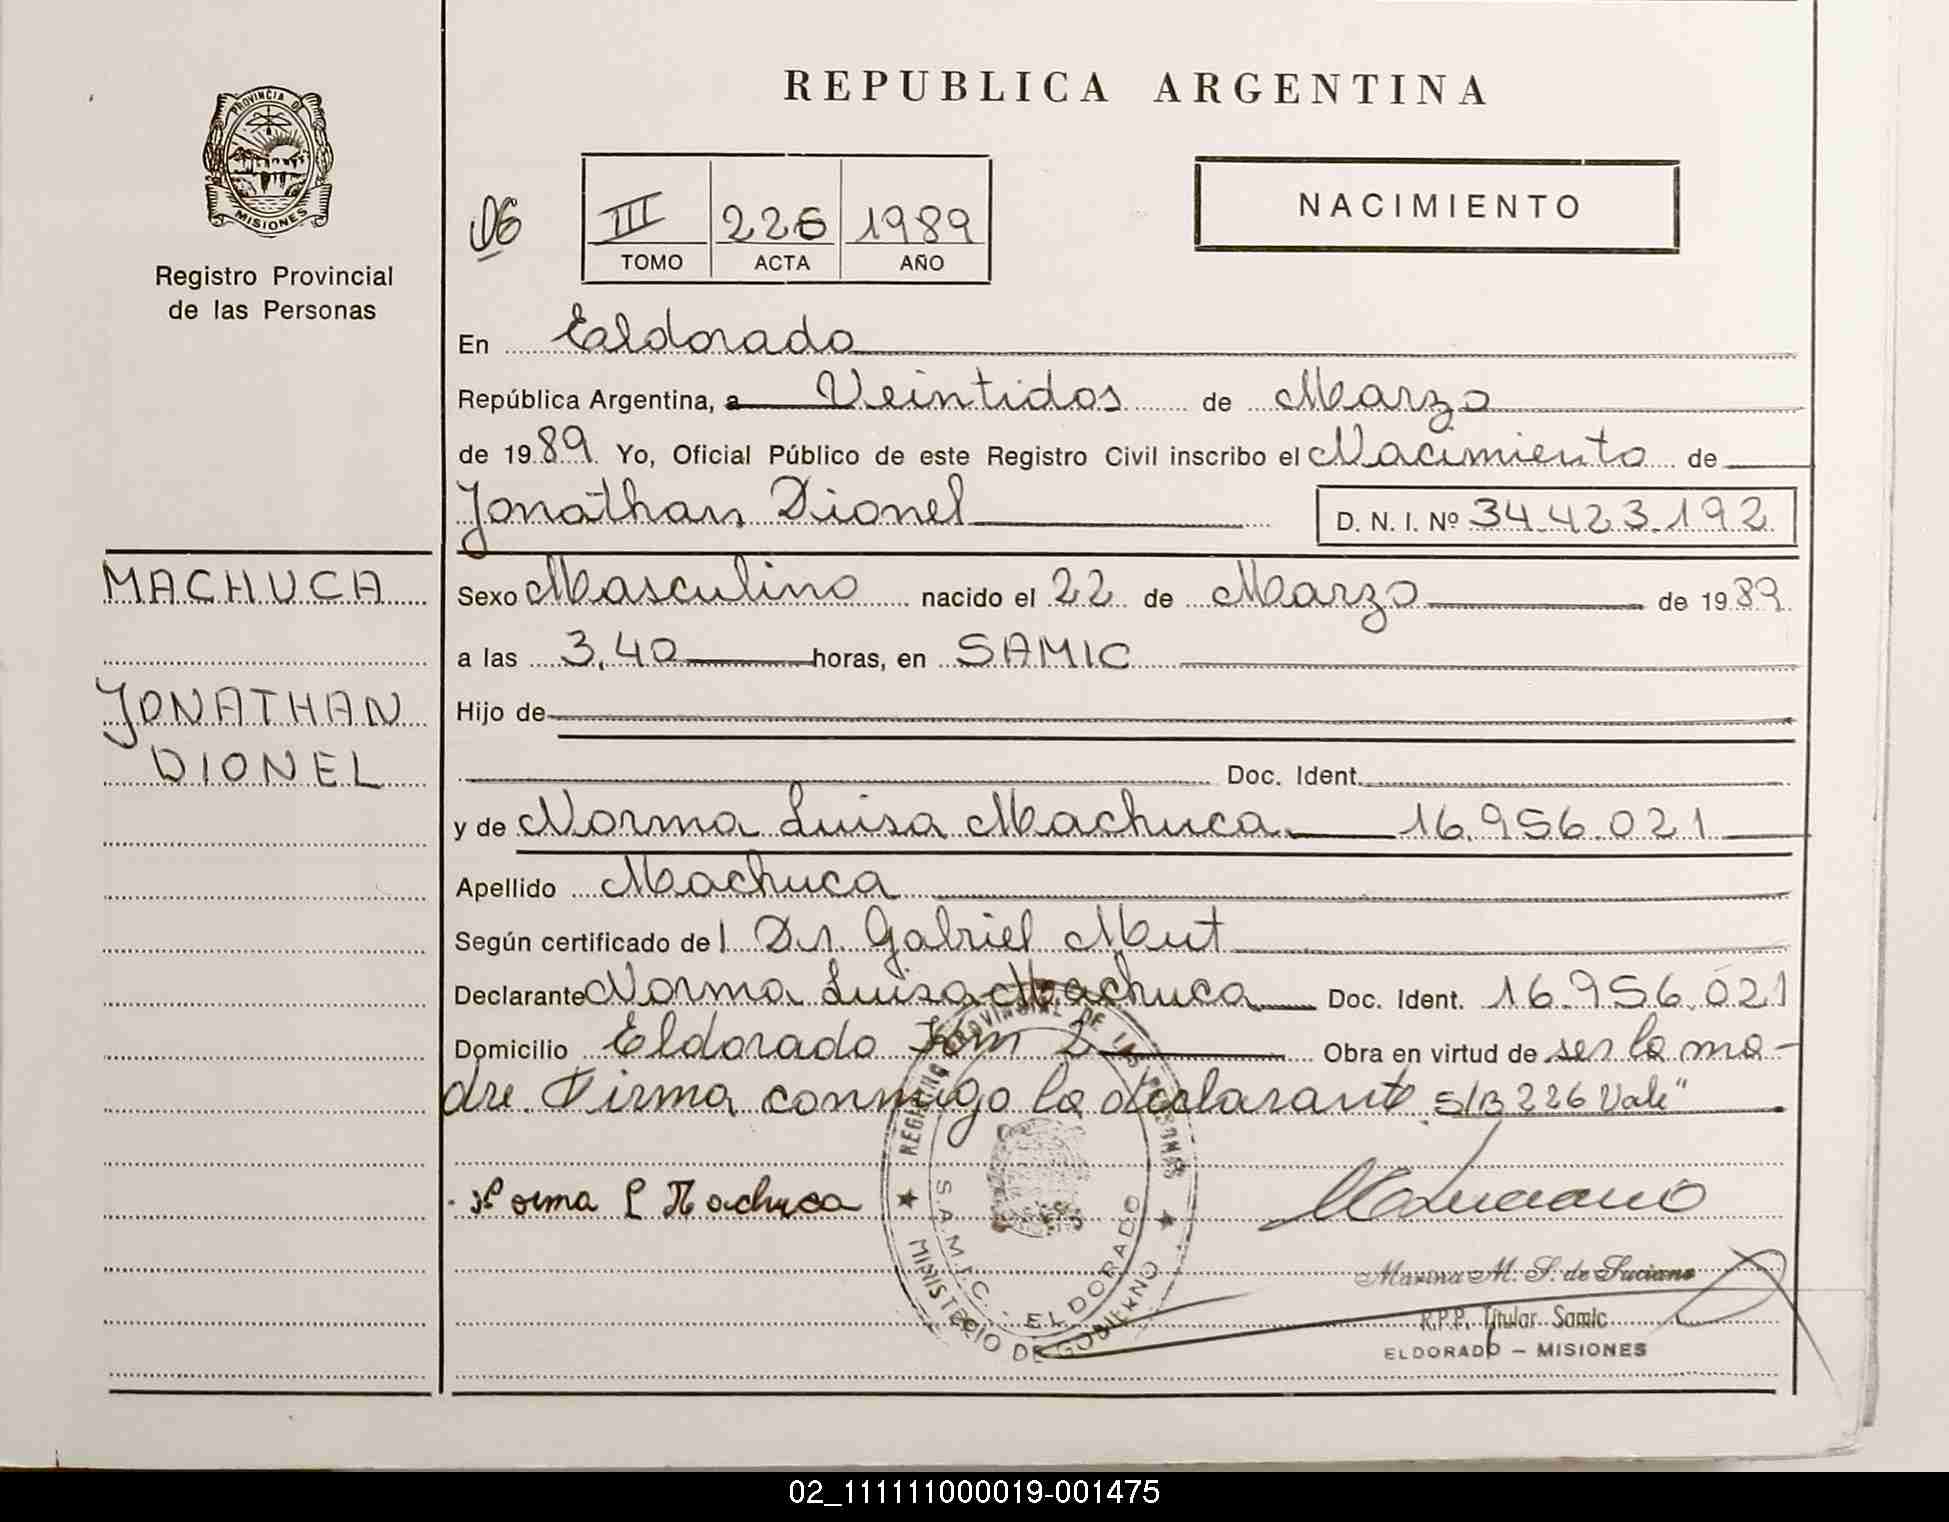 REPUBLICA ARGENTINA
PROVINCIA DE
MISIONES
Registro Provincial
de las Personas
06
III 226 1989
TOMO ACTA AÑO
NACIMIENTO
En Eldorado
República Argentina, a Veintidos de Marzo
de 1989 Yo, Oficial Público de este Registro Civil inscribo el Nacimiento de
Jonathan Dionel D. N. I. Nº 34.423.192
MACHUCA
JONATHAN
DIONEL
Sexo Masculino nacido el 22 de Marzo de 1989
a las 3,40 horas, en SAMIC
Hijo de
Doc. Ident.
y de Norma Luisa Machuca 16.956.021
Apellido Machuca
Según certificado del Dr. Gabriel Mut
Declarante Norma Luisa Machuca Doc. Ident. 16.956.021
Domicilio Eldorado Km 2 Obra en virtud de ser la ma-
dre. Firma conmigo la declarante S/B 226 Vale"
Norma L Machuca
REGISTRO PROVINCIAL DE LAS PERSONAS
S.A.M.I.C. - ELDORADO
MINISTERIO DE GOBIERNO
Marina M. S. de Luciano
R.P.P. Titular Samic
ELDORADO – MISIONES
02_111111000019-001475